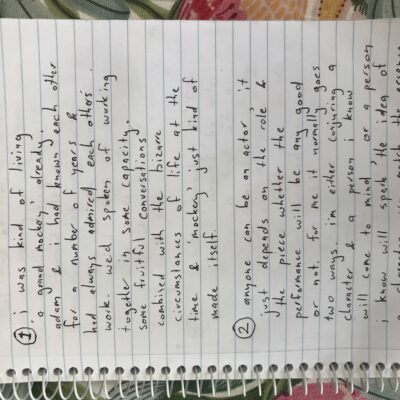 ① i was kind of living
a grand mockery' already.
adam & i had known each other
for a number of years &
had always admired each others
work. we'd spoken of working
together in some capacity.
some fruitful conversations
combined with the bizarre
circumstances of life at the
time & 'mockery' just kind of
made itself.
② anyone can be an actor, it
just depends on the role &
the piece whether the
performance will be any good
or not. for me it normally goes
two ways, i'm either conjuring a
character & a person i know
will come to mind, or a person
i know will spark the idea of
a character